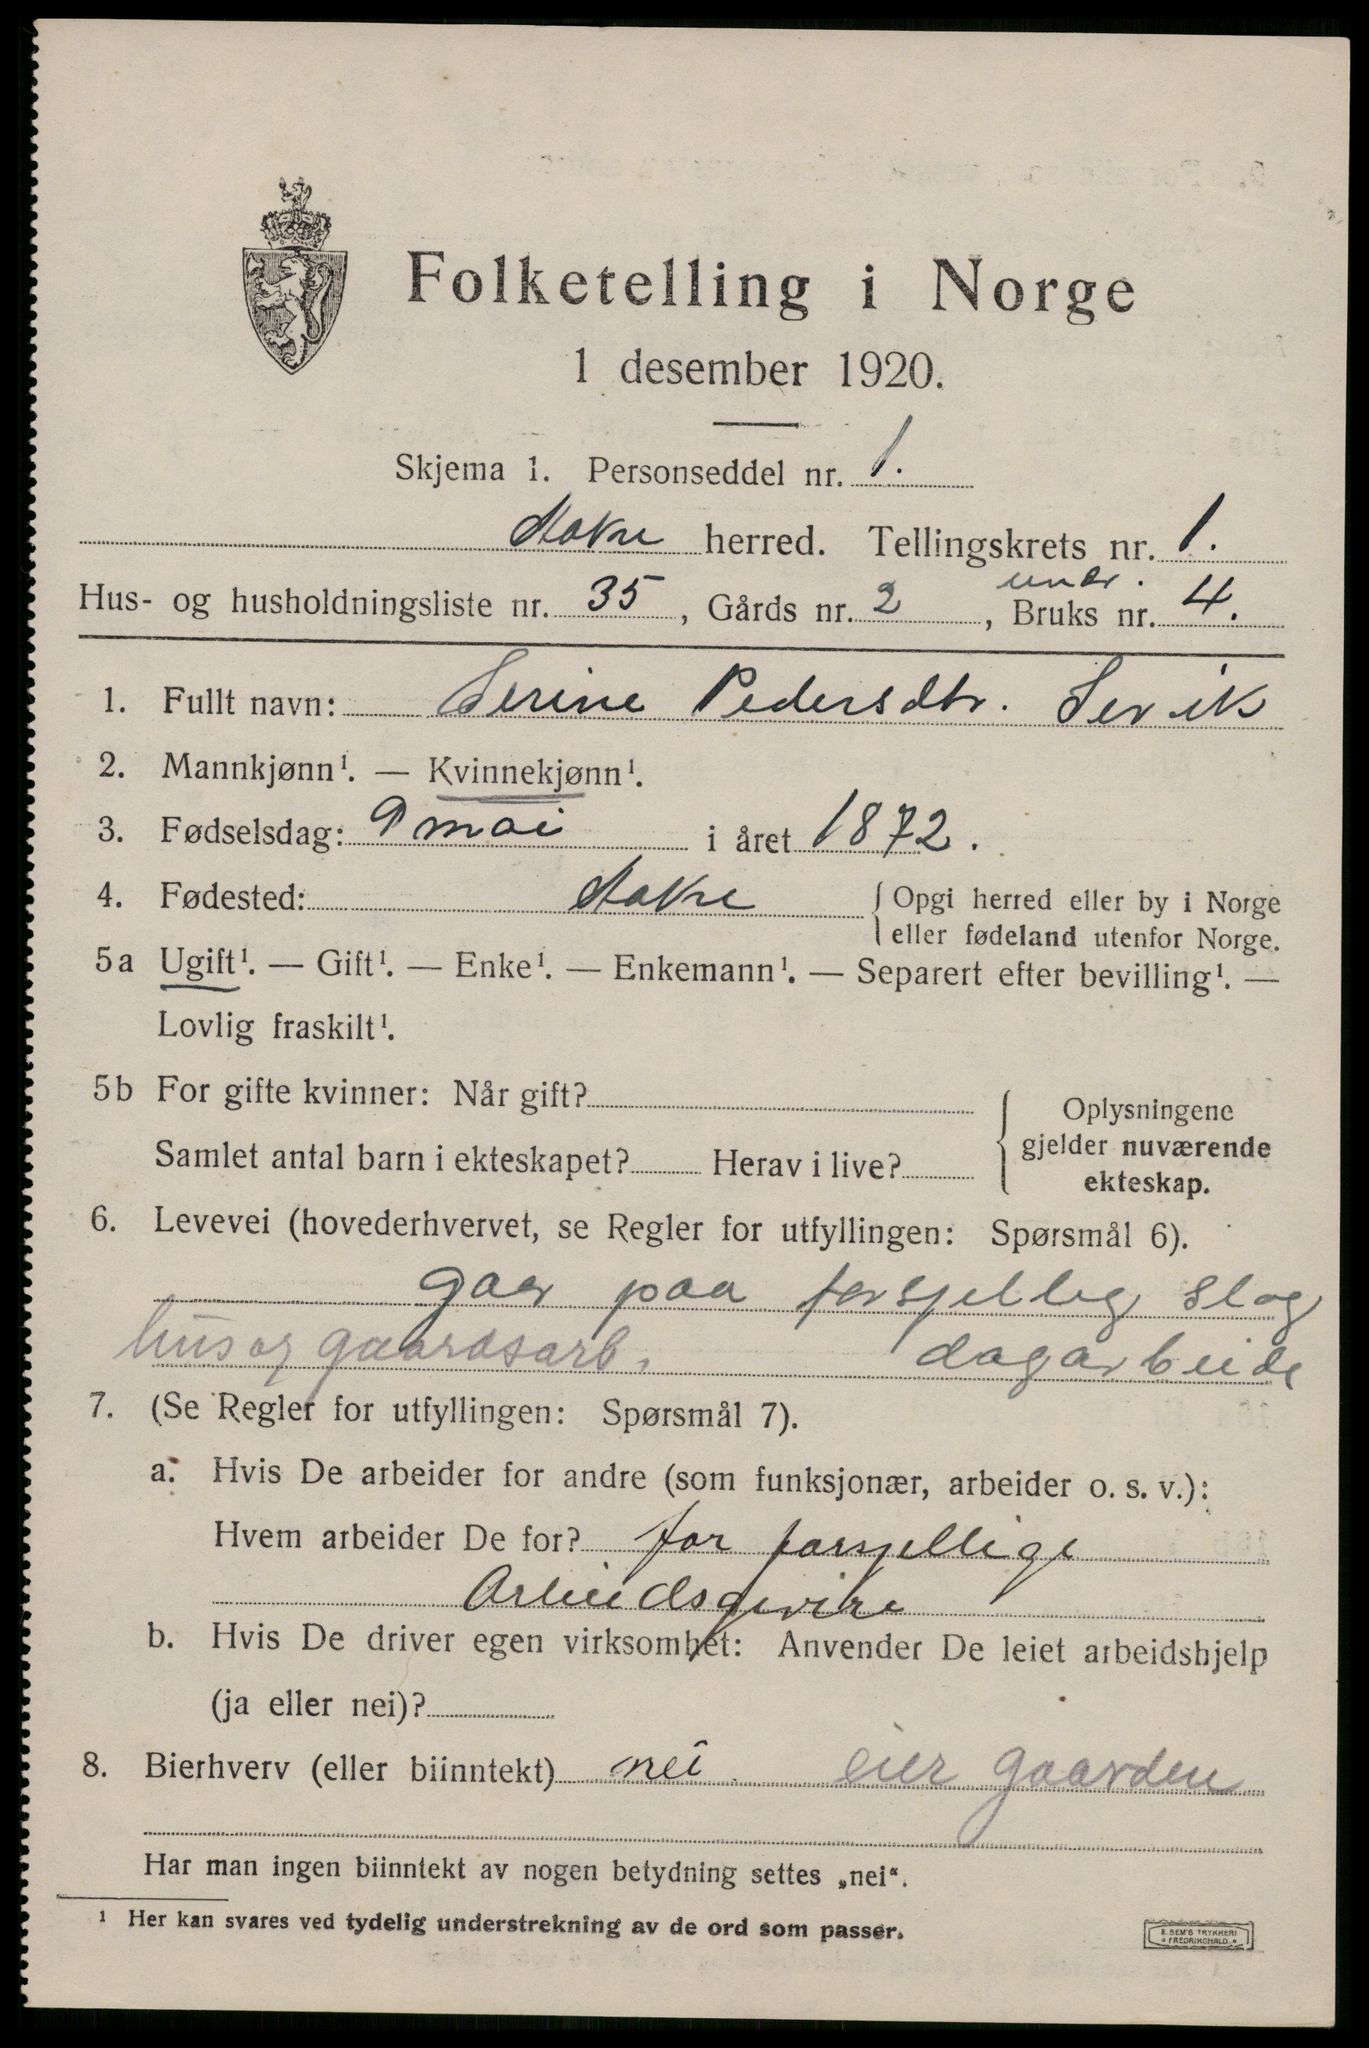 Folketelling i Norge
1 desember 1920.
Skjema 1. Personseddel nr. 1.
herred. Tellingskrets nr. 1.
undr.
Hus- og husholdningsliste nr. 35, Gårds nr. 2, Bruks nr. 4.
1. Fullt navn: Serine Pedersdtr. Servik
2. Mannkjønn¹. — Kvinnekjønn¹.
3. Fødselsdag: 9 mai i året 1872.
4. Fødested: { Opgi herred eller by i Norge
eller fødeland utenfor Norge.
5a Ugift¹. — Gift¹. — Enke¹. — Enkemann¹. — Separert efter bevilling¹. —
Lovlig fraskilt¹.
5b For gifte kvinner: Når gift? { Oplysningene
gjelder nuværende
Samlet antal barn i ekteskapet? Herav i live?
ekteskap.
6. Levevei (hovederhvervet, se Regler for utfyllingen: Spørsmål 6).
gaar paa forsjellig slag
hus og gaardsarb. dagarbeide
7. (Se Regler for utfyllingen: Spørsmål 7).
a. Hvis De arbeider for andre (som funksjonær, arbeider o. s. v.):
Hvem arbeider De for? for forsjellige
Arbeidsgivere
b. Hvis De driver egen virksomhet: Anvender De leiet arbeidshjelp
(ja eller nei)?
8. Bierhverv (eller biinntekt) nei. eier gaarden
Har man ingen biinntekt av nogen betydning settes „nei“.
¹ Her kan svares ved tydelig understrekning av de ord som passer.
E. SEM'S TRYKKERI
FREDRIKSHALD